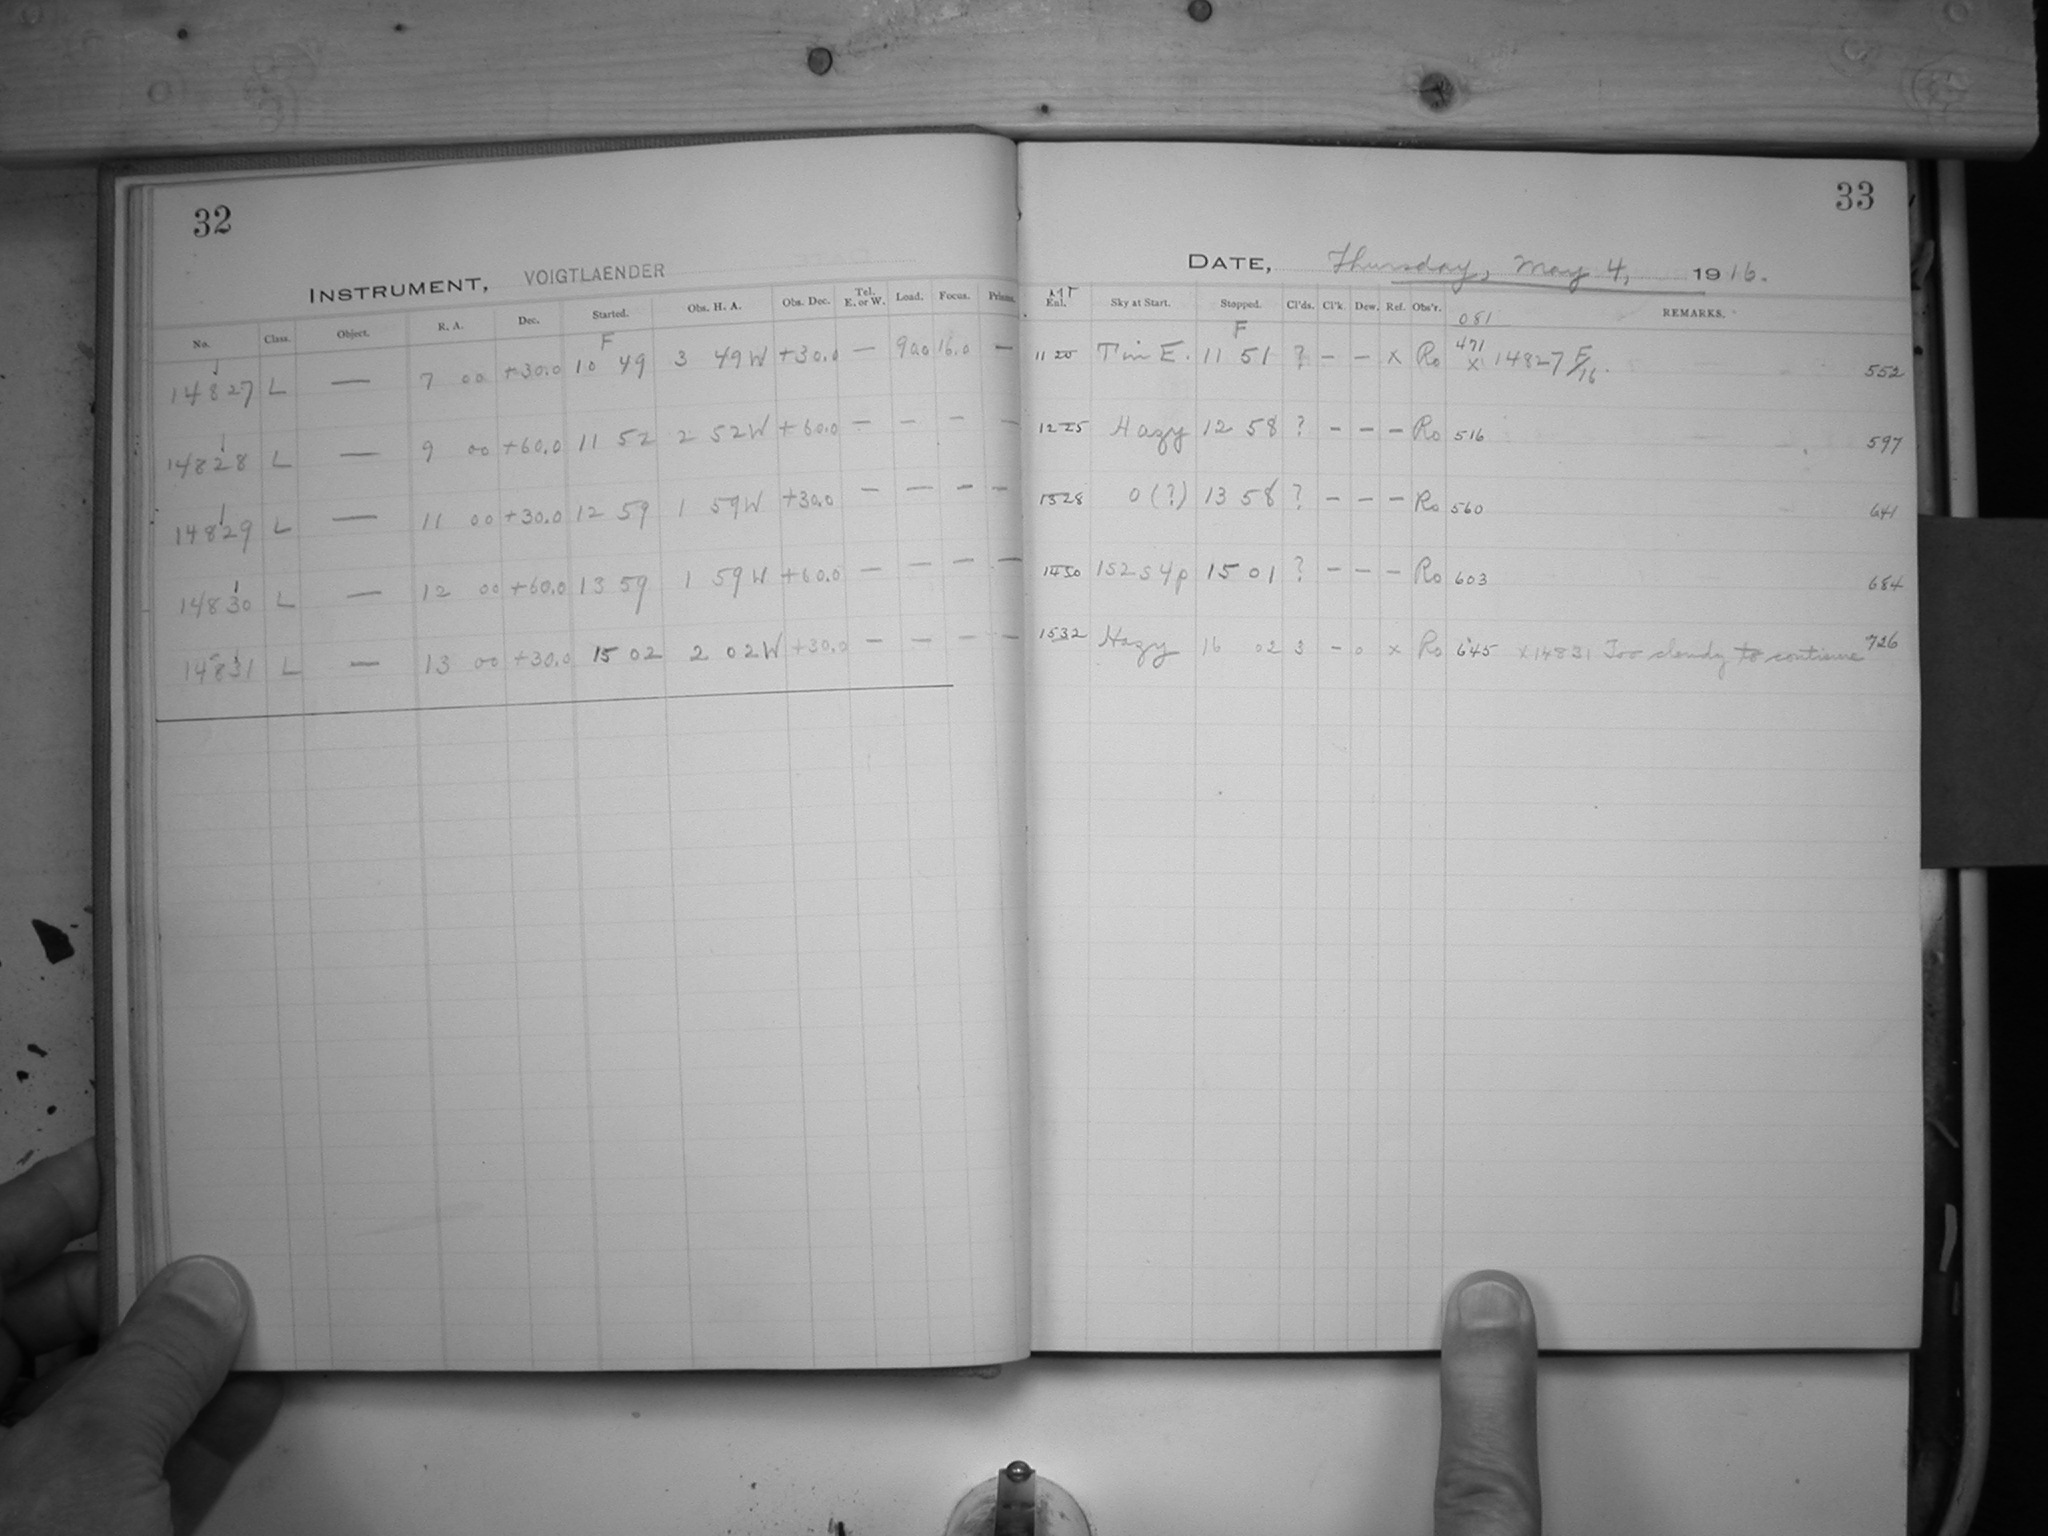 32
INSTRUMENT, VOIGTLAENDER
No. Class. Object. R. A. Dec. Started. Obs. H. A. Obs. Dec. Tel. E. or W. Load. Focus. Prisms.
F
14827 L — 7 00 +30.0 10 49 3 49W +30.0 — 90.0 16.0 —
14828 L — 9 00 +60.0 11 52 2 52W +60.0 — — — —
14829 L — 11 00 +30.0 12 59 1 59W +30.0 — — — —
14830 L — 12 00 +60.0 13 59 1 59W +60.0 — — — —
14831 L — 13 00 +30.0 15 02 2 02W +30.0 — — — —
33
DATE, Thursday, May 4, 1916.
Enl. Sky at Start. Stopped. Cl'ds. Cl'k. Dew. Ref. Obs'r. REMARKS.
F 081
11 20 T in E. 11 51 ? — — x Ro 471 x 14827 F/16. 552
12 25 Hazy 12 58 ? — — — Ro 516 597
1328 0 (?) 13 58 ? — — — Ro 560 641
1430 1S2S4p 15 01 ? — — — Ro 603 684
1532 Hazy 16 02 3 — 0 x Ro 645 x14831 Too cloudy to continue 726